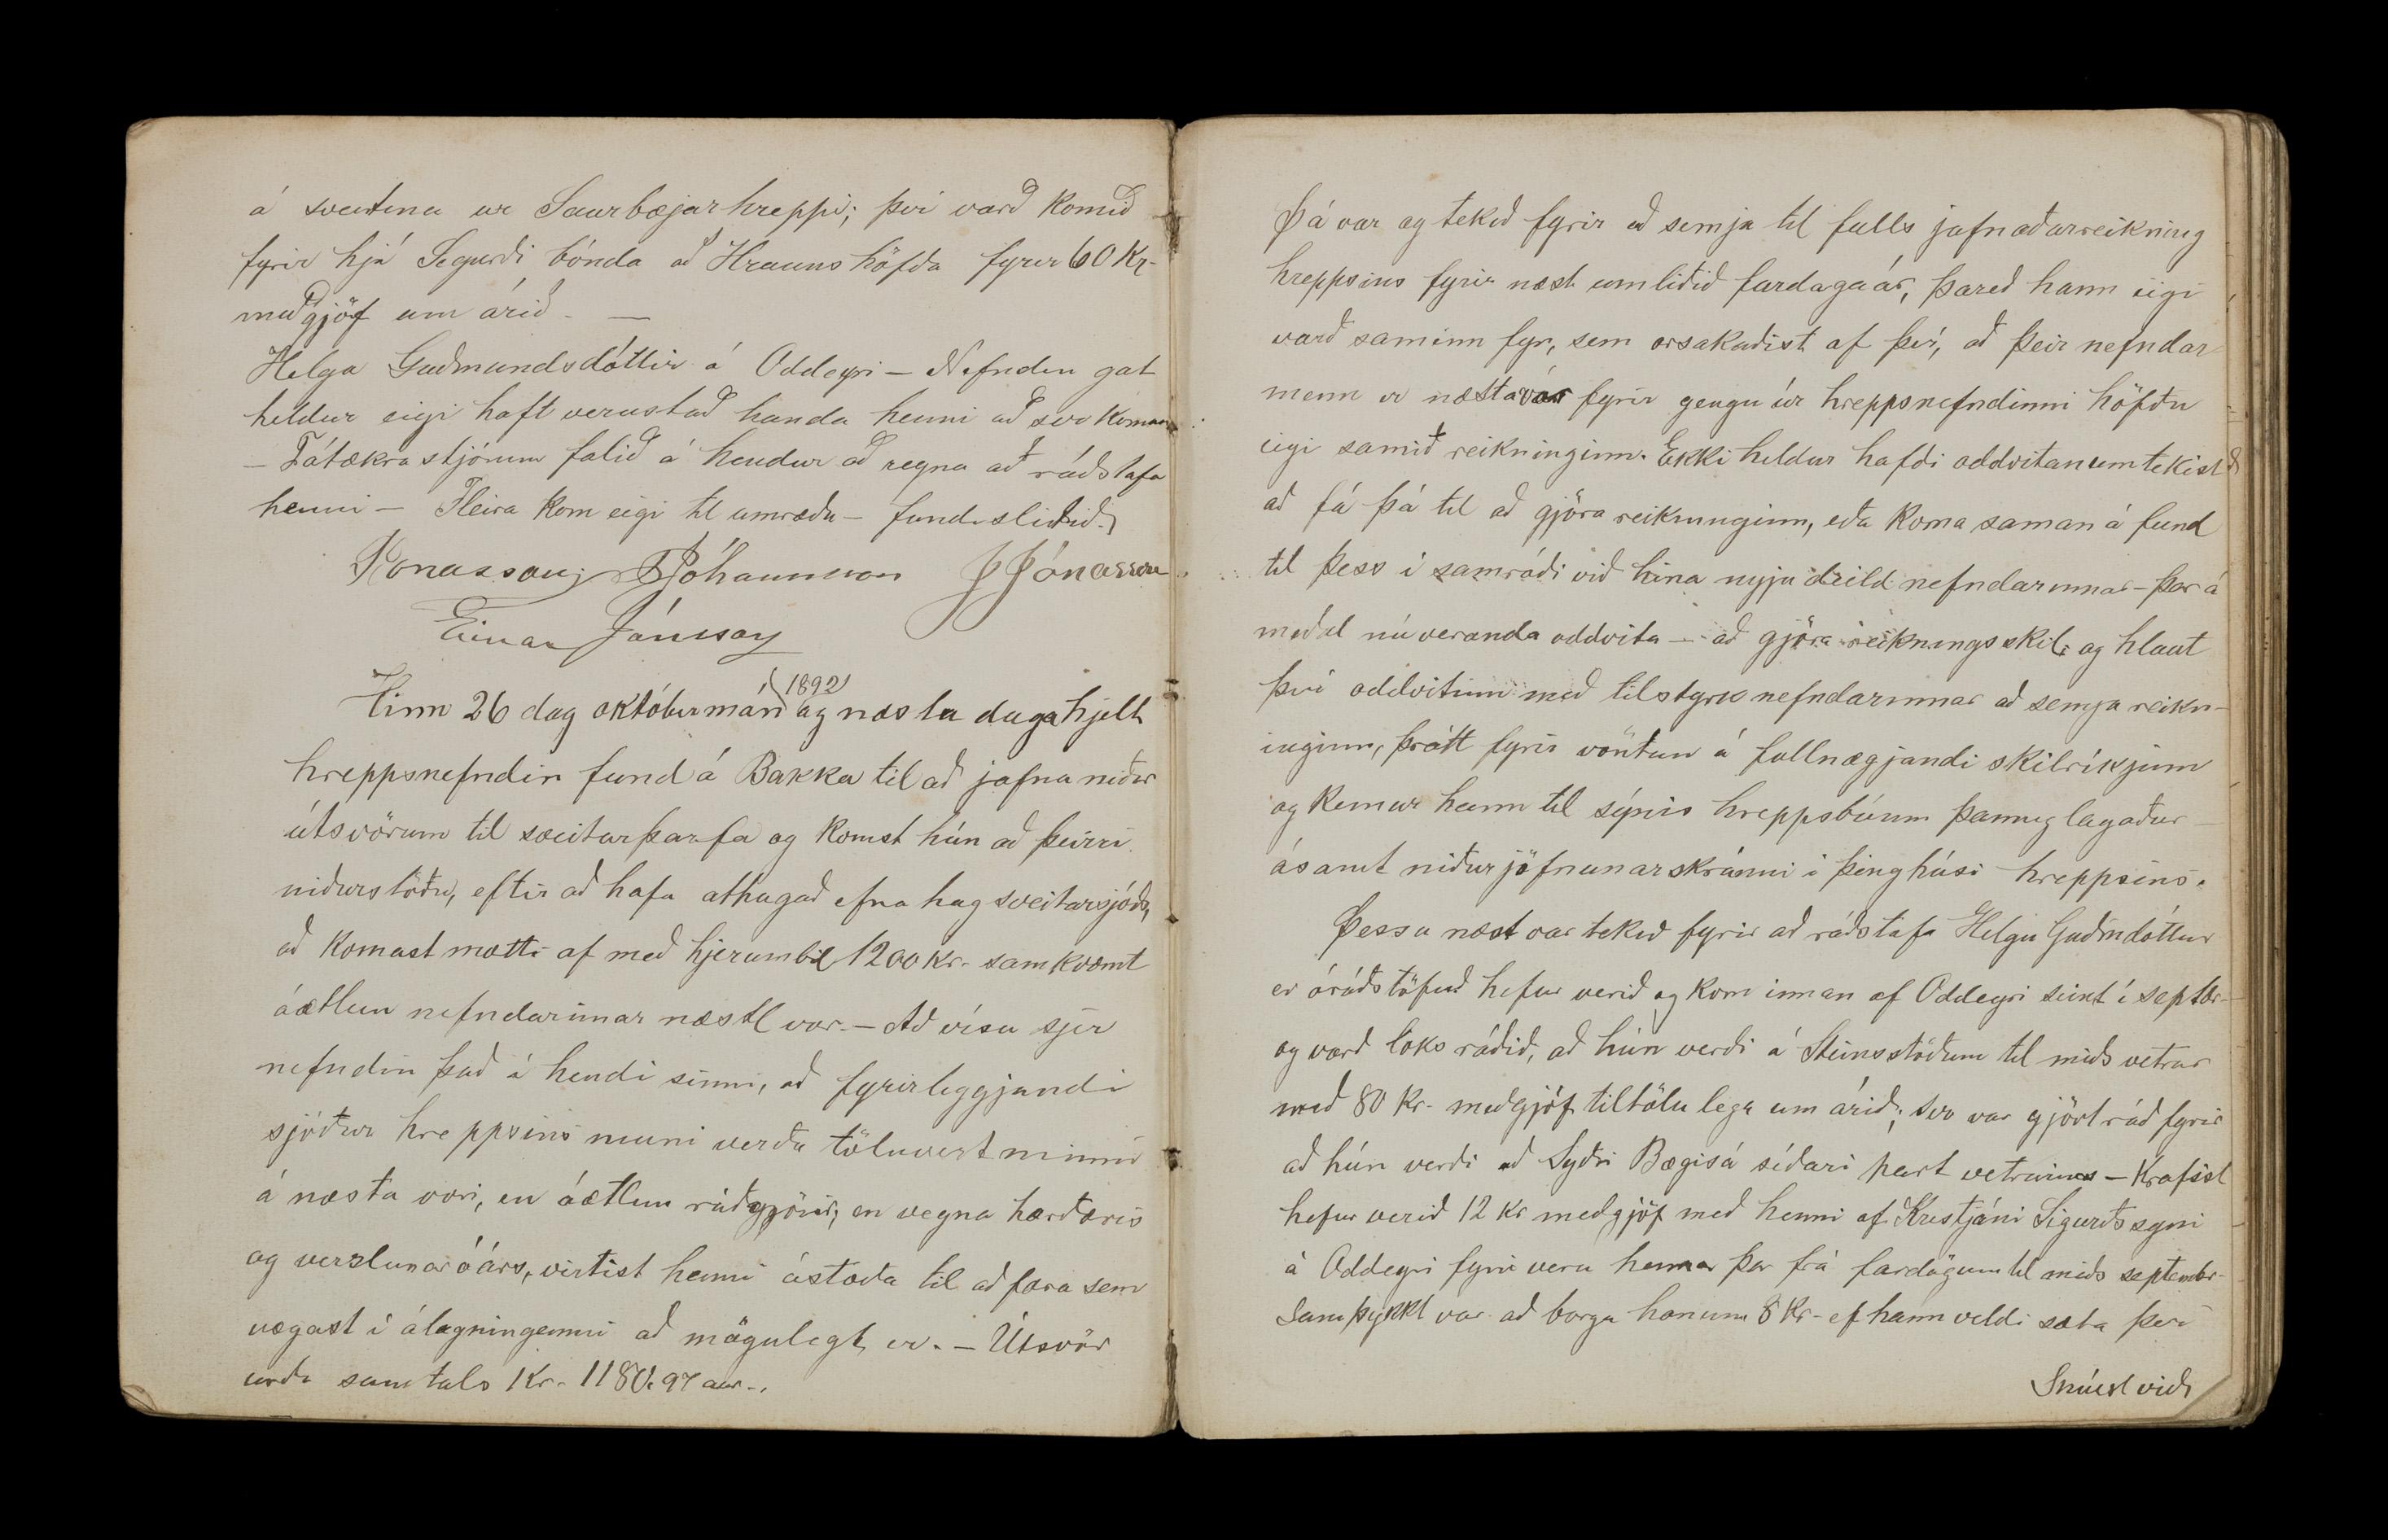 á sveitina ur Saurbæjarhreppi; því varð komið
fyrir hjá Sigurði bónda að Hraunshöfða fyrir 60 Kr-
meðgjöf um árið. —
Helga Guðmundsdóttir á Oddeyri — Nefndin gat
heldur eigi haft verustað handa henni að svo komnu
— Fátækrastjórum falið á hendur að regna að ráðstafa
henni — Fleira kom eigi til umræðu — fundi slitið.
Jónasson J Jóhannsson J Jónasson
Einar Jónsson
Hinn 26 dag októbermán 1892 og næsta daga hjelt
hreppsnefndin fund á Bakka til að jafna niður
útsvörum til sveitarþarfa og komst hún að þeirri
niðurstöðu, eftir að hafa athugað efnahag sveitarsjóðs,
að komast mætti af með hjerumbil 1200 kr. samkvæmt
áætlun nefndarinnar næstl vor. — Að vísu sjer
nefndin það á hendi sinni, að fyrirleggjandi
sjóður hreppsins muni verða töluvert minni
á næsta vori, en áætlun ráðgjörir, en vegna harðæris
og verzlunaróárs, virtist henni ástæða til að fara sem
vægast í álagningunni að mögulegt er. — Útsvör
urðu samtals Kr. 1180.97 aur..
Þá var og tekið fyrir að semja til fulls jafnaðarreikning
hreppsins fyrir næst umliðið fardagaár, þareð hann eigi
varð saminn fyr, sem orsakaðist af því, að þeir nefndar
menn er næsta vor fyrir gengu úr hreppsnefndinni höfðu
eigi samið reikninginn. Ekki heldur hafði oddvitanum tekist
að fá þá til að gjöra reikninginn, eða koma saman á fund
til þess í samráði við hina nyju deild nefndarinnar — þar á
meðal núveranda oddvita — að gjöra reikningsskil, og hlaut
því oddvitinn með tilstyrk nefndarinnar að semja reikn-
inginn, þrátt fyrir vöntun á fullnægjandi skilríkjum
og kemur hann til sýnis hreppsbúum þannig lagaður —
ásamt niðurjöfnunarskránni í þinghúsi hreppsins.
Þessu næst var tekið fyrir að ráðstafa Helgu Guðmdóttur
er óráðstöfuð hefur verið og kom innan af Oddeyri seint í septbr-
og varð loks ráðið, að hún verði á Steinsstöðum til miðs vetrar
með 80 kr- meðgjöf tiltölulega um árið; svo var gjört ráð fyrir
að hún verði að Syðri Bægisá síðari part vetrarins — Krafist
hefur verið 12 kr meðgjöf með henni af Kristjáni Sigurðssyni
á Oddeyri fyrir veru hennar þar frá fardögum til miðs september-
Samþykkt var að borga honum 8 Kr- ef hann vildi sæta því
Snúist við